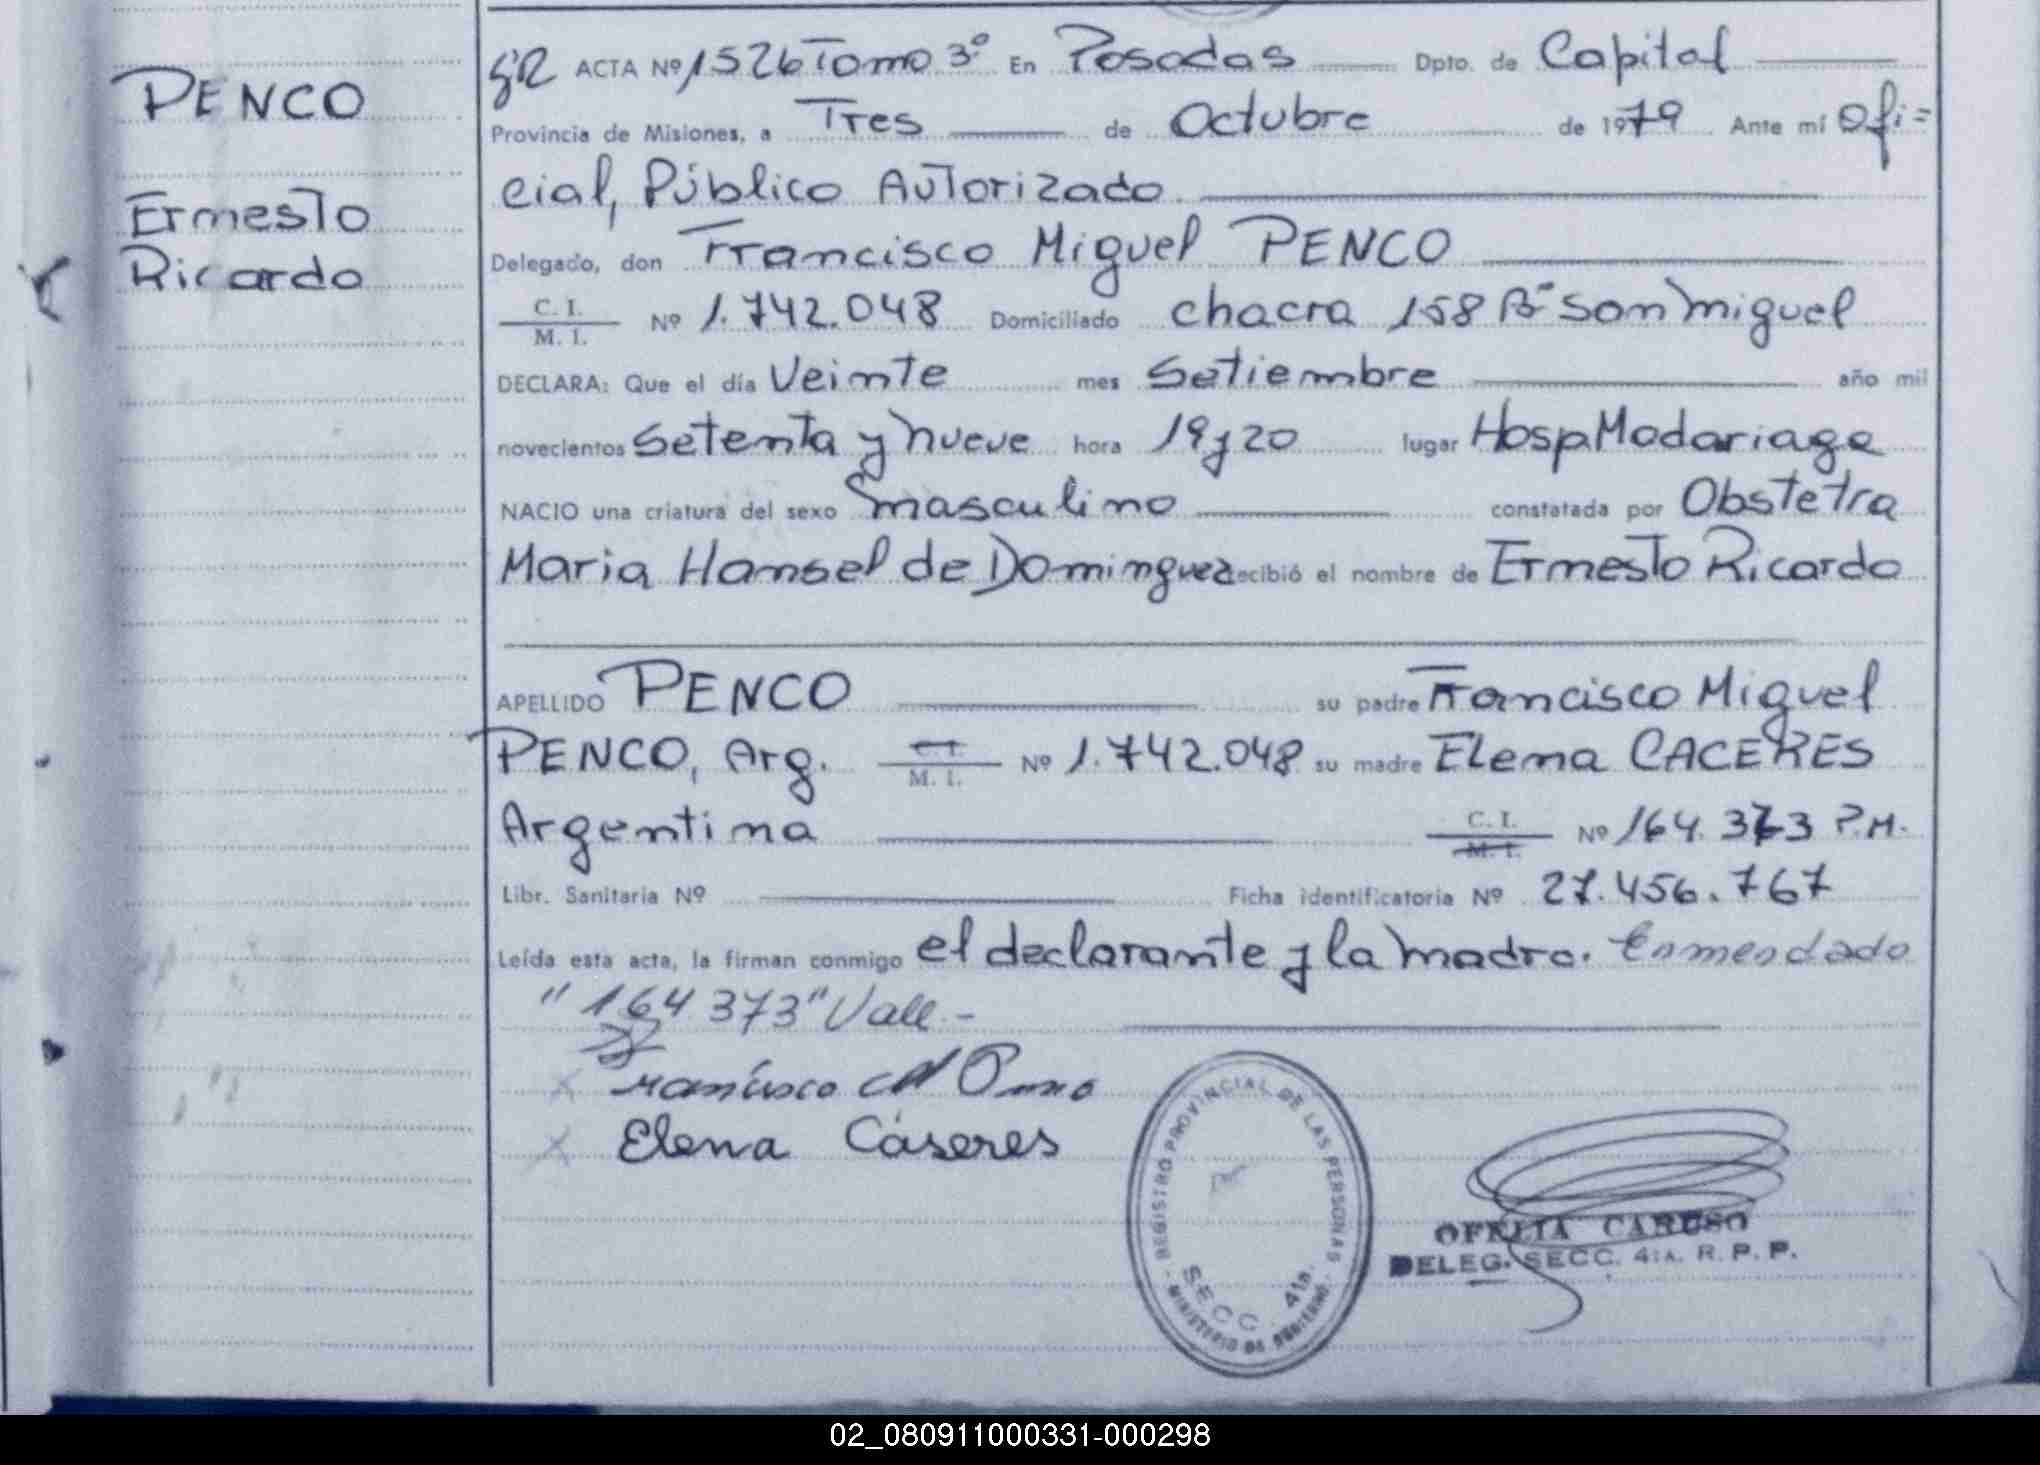 PENCO
Ernesto
Ricardo
ACTA Nº 1526 Tomo 3º En Posadas Dpto. de Capital
Provincia de Misiones, a Tres de Octubre de 1979 Ante mí Ofi=
cial, Público Autorizado
Delegado, don Francisco Miguel PENCO
C. I.
M. I. Nº 1.742.048 Domiciliado chacra 158 Bº San Miguel
DECLARA: Que el día Veinte mes Setiembre año mil
novecientos Setenta y nueve hora 19 y 20 lugar Hosp Madariaga
NACIO una criatura del sexo masculino constatada por Obstetra
Maria Hansel de Dominguez recibió el nombre de Ernesto Ricardo
APELLIDO PENCO su padre Francisco Miguel
PENCO, Arg. C. I. M. I. Nº 1.742.048 su madre Elena CACERES
Argentina C. I. M. I. Nº 164.373 P.M.
Libr. Sanitaria Nº Ficha identificatoria Nº 27.456.767
Leída esta acta, la firman conmigo el declarante y la madre. Enmendado
"164 373" Vale -
Francisco M Penco
Elena Cáseres
REGISTRO PROVINCIAL DE LAS PERSONAS
SECC. 41a.
MINISTERIO DE GOBIERNO
OFELIA CARUSO
DELEG. SECC. 4:A. R. P. P.
02_080911000331-000298